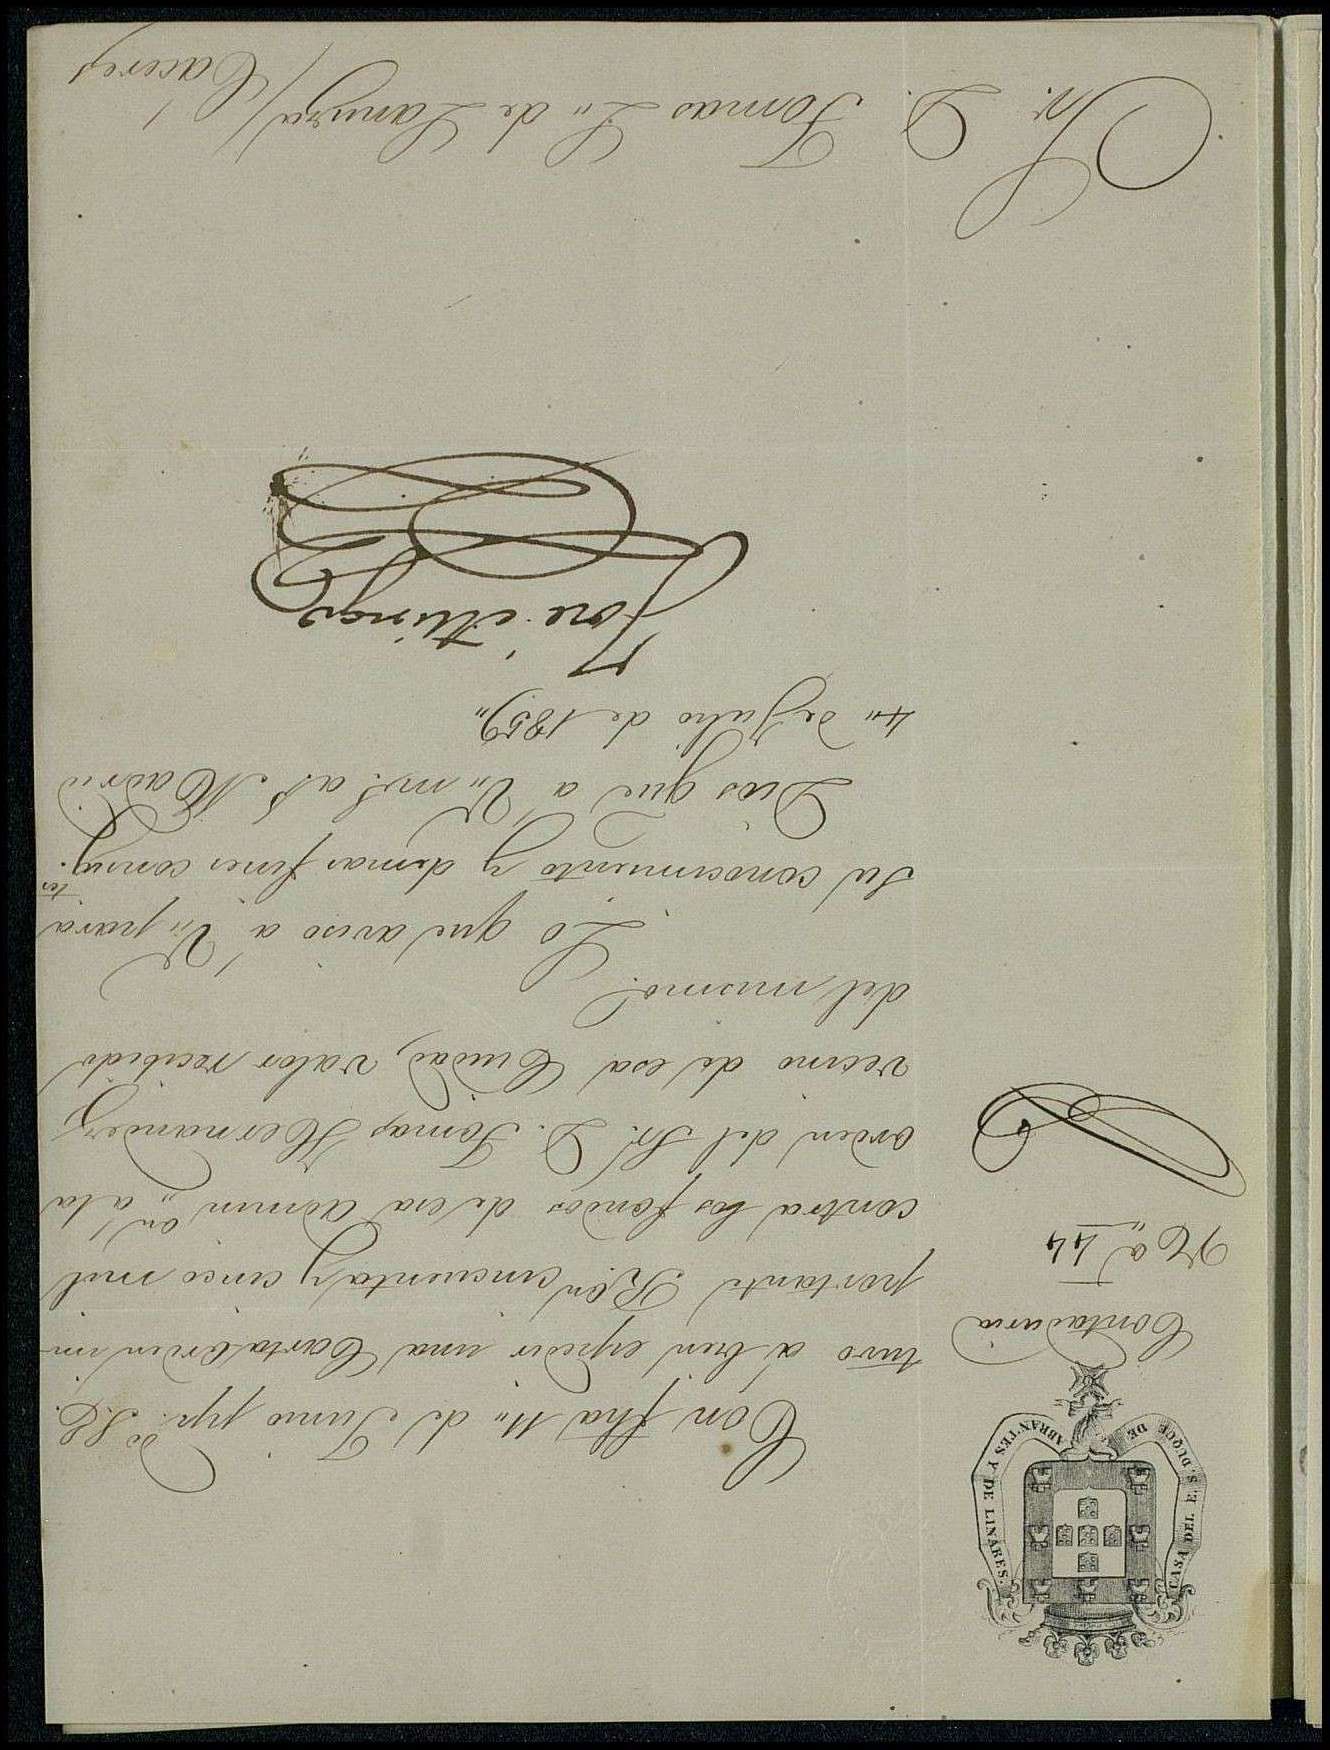 CASA DEL E. S. DUQUE DE ABRANTES Y DE LINARES.
Contaduria
Nº 144
Con fha 11,, de Junio pp.do S.E.
tuvo a bien espedir una Carta orden im-
portante R.on cincuenta y cinco mil
contra los fondos de esa Admin.on,, a la
orden del Sr. D. Tomas Hernandez,
vecino de esa Ciudad, valor recibido
del mismo.
Lo que aviso á V,, para
su conocimiento y demas fines consig.tes
Dios gue a V,, m.s a.s Madrid
4,, de Julio de 1859,,
Jose Minguez
Sr. D. Tomas L,, de Sanz / Caceres